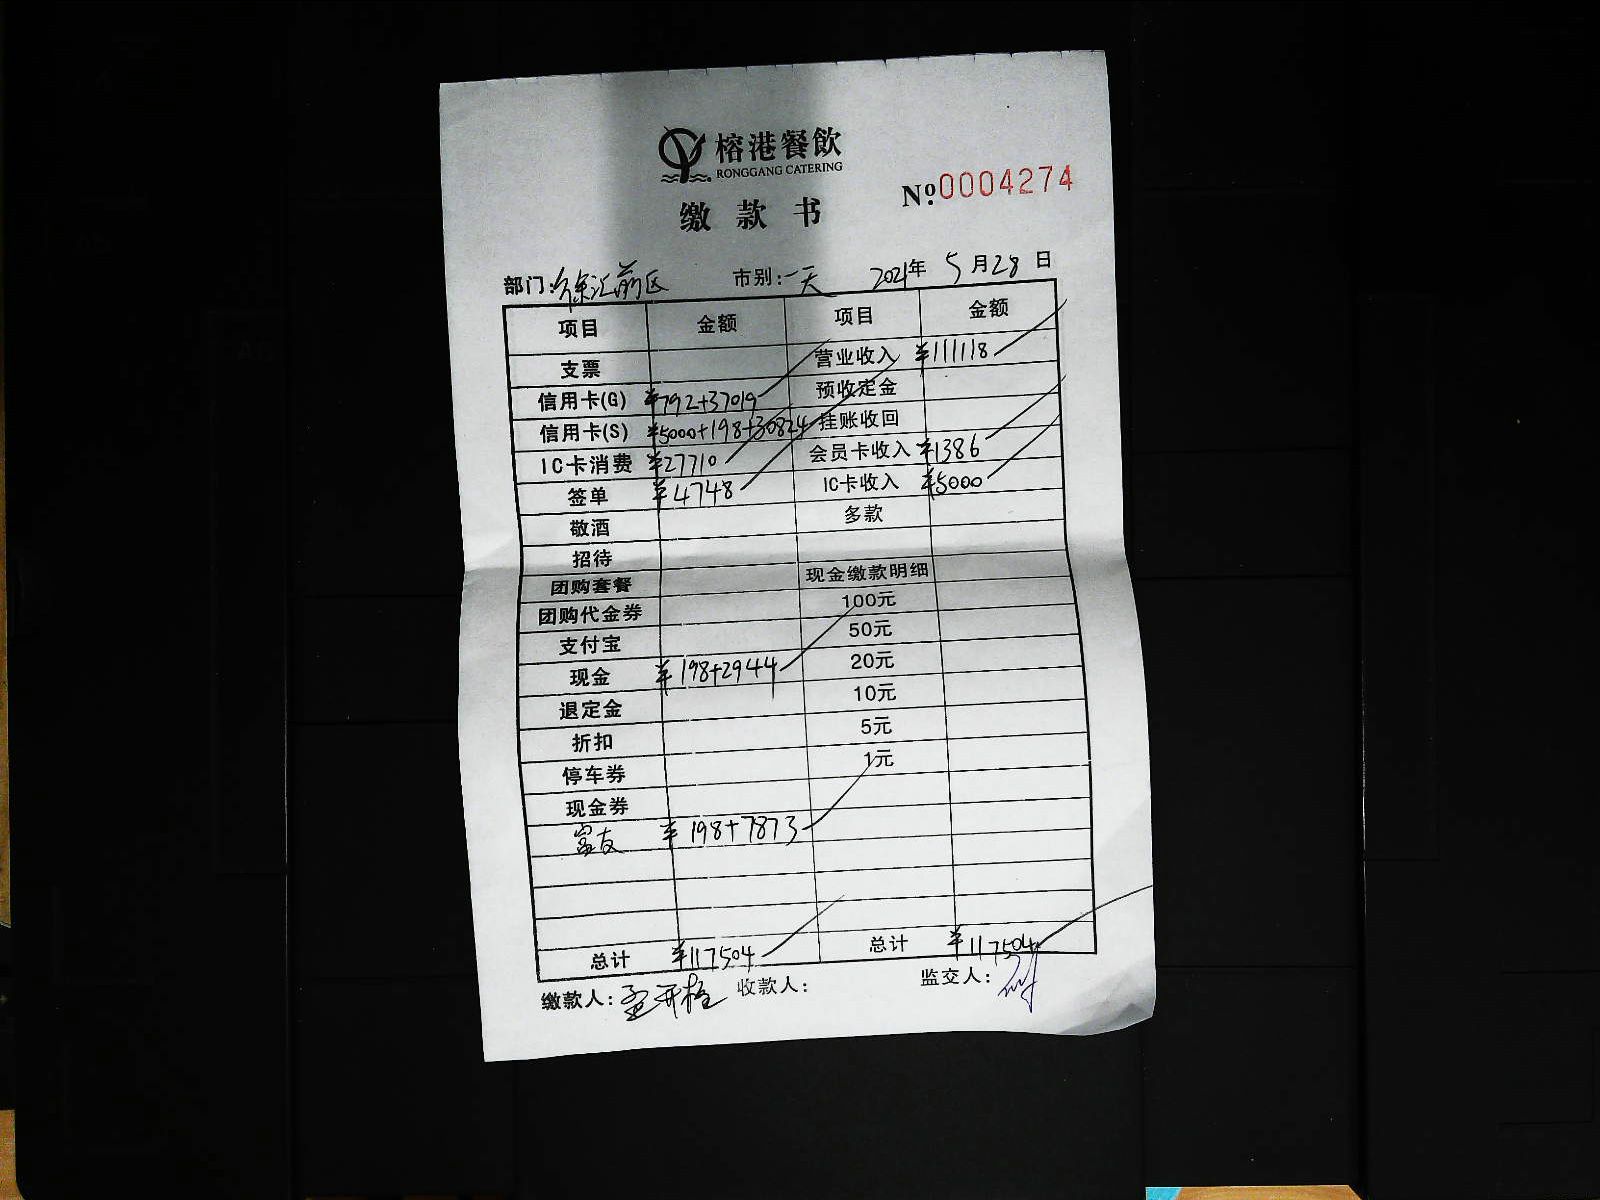 榕港餐飲
RONGGANG CATERING
缴款书
№0004274
部门:徐汇前区 市别:一天 2021年 5月28日
项目 金额 项目 金额
支票 营业收入 ¥111118
信用卡(G) ¥792+37019 预收定金
信用卡(S) ¥5000+198+30824 挂账收回
IC卡消费 ¥27710 会员卡收入 ¥1386
签单 ¥4748 IC卡收入 ¥5000
敬酒 多款
招待
团购套餐 现金缴款明细
团购代金券 100元
支付宝 50元
现金 ¥198+2944 20元
退定金 10元
折扣 5元
停车券 1元
现金券
富友 ¥198+7873
总计 ¥117504 总计 ¥117504
缴款人: 收款人: 监交人: